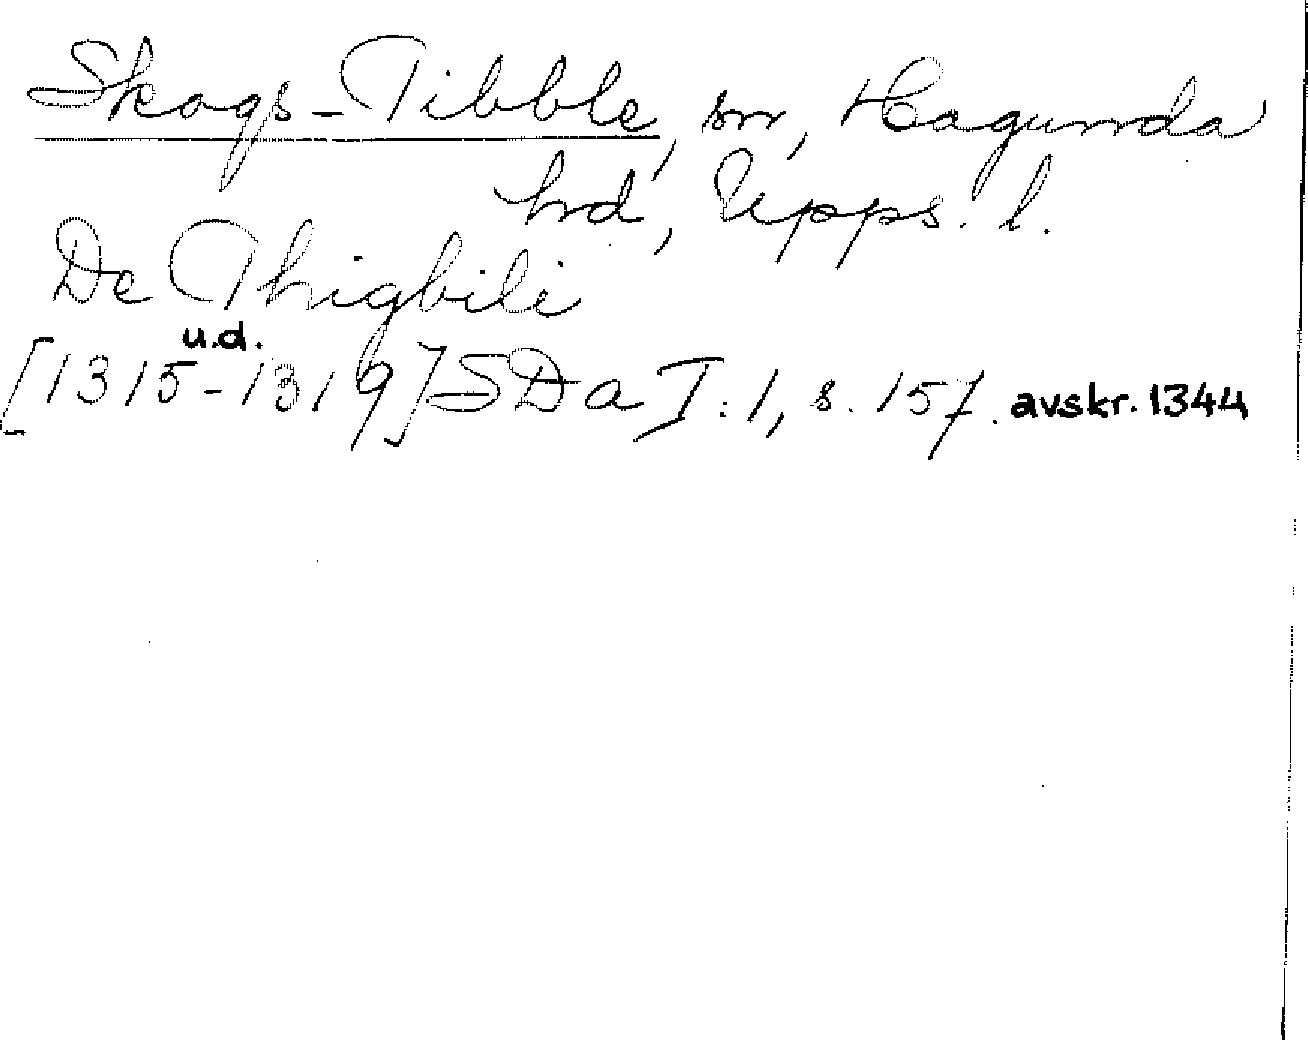 Skogs-Tibble, sn, Hagunda
hd, Upps. l.
De Thigbili
u.d.
[1315-1319] SDa I:1, s. 157. avskr. 1344